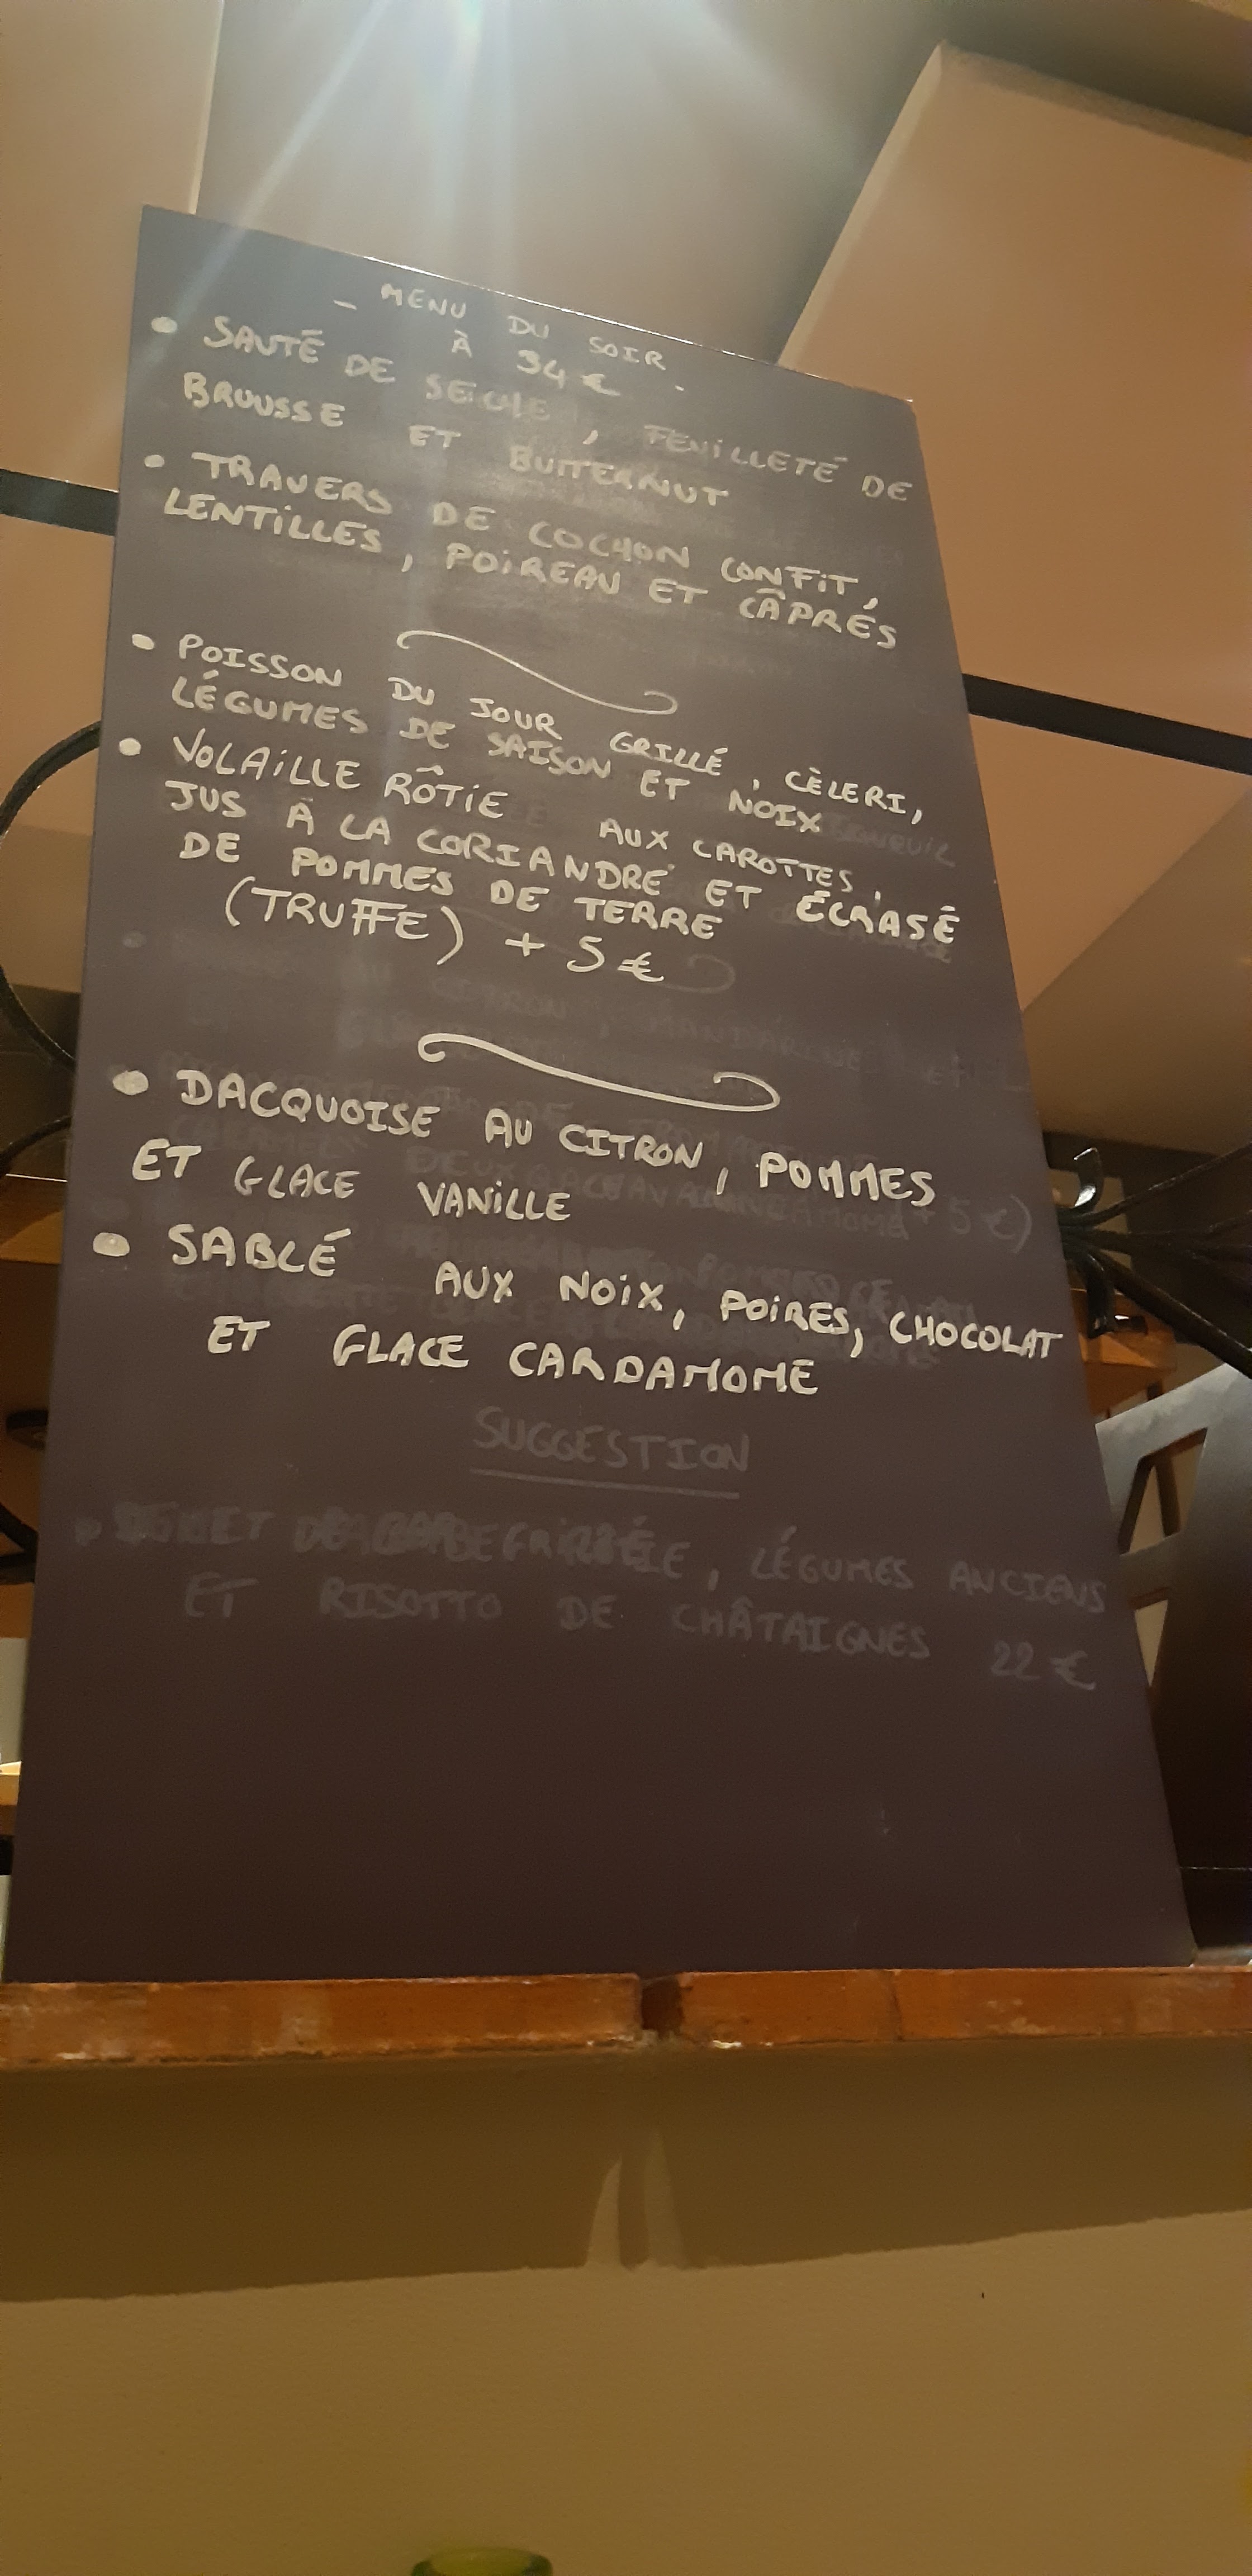 - MENU DU SOIR -
À 34 €
• SAUTÉ DE SEICHE, FEUILLETÉ DE
BROUSSE ET BUTTERNUT
• TRAVERS DE COCHON CONFIT,
LENTILLES, POIREAU ET CÂPRÉS
• POISSON DU JOUR GRILLÉ, CÈLERI,
LÉGUMES DE SAISON ET NOIX
• VOLAILLE RÔTIE AUX CAROTTES,
JUS À LA CORIANDRE ET ÉCRASÉ
DE POMMES DE TERRE
(TRUFFE) + 5 €
• DACQUOISE AU CITRON, POMMES
ET GLACE VANILLE
• SABLÉ AUX NOIX, POIRES, CHOCOLAT
ET GLACE CARDAMOME
SUGGESTION
LÉGUMES ANCIENS
ET RISOTTO DE CHÂTAIGNES 22 €